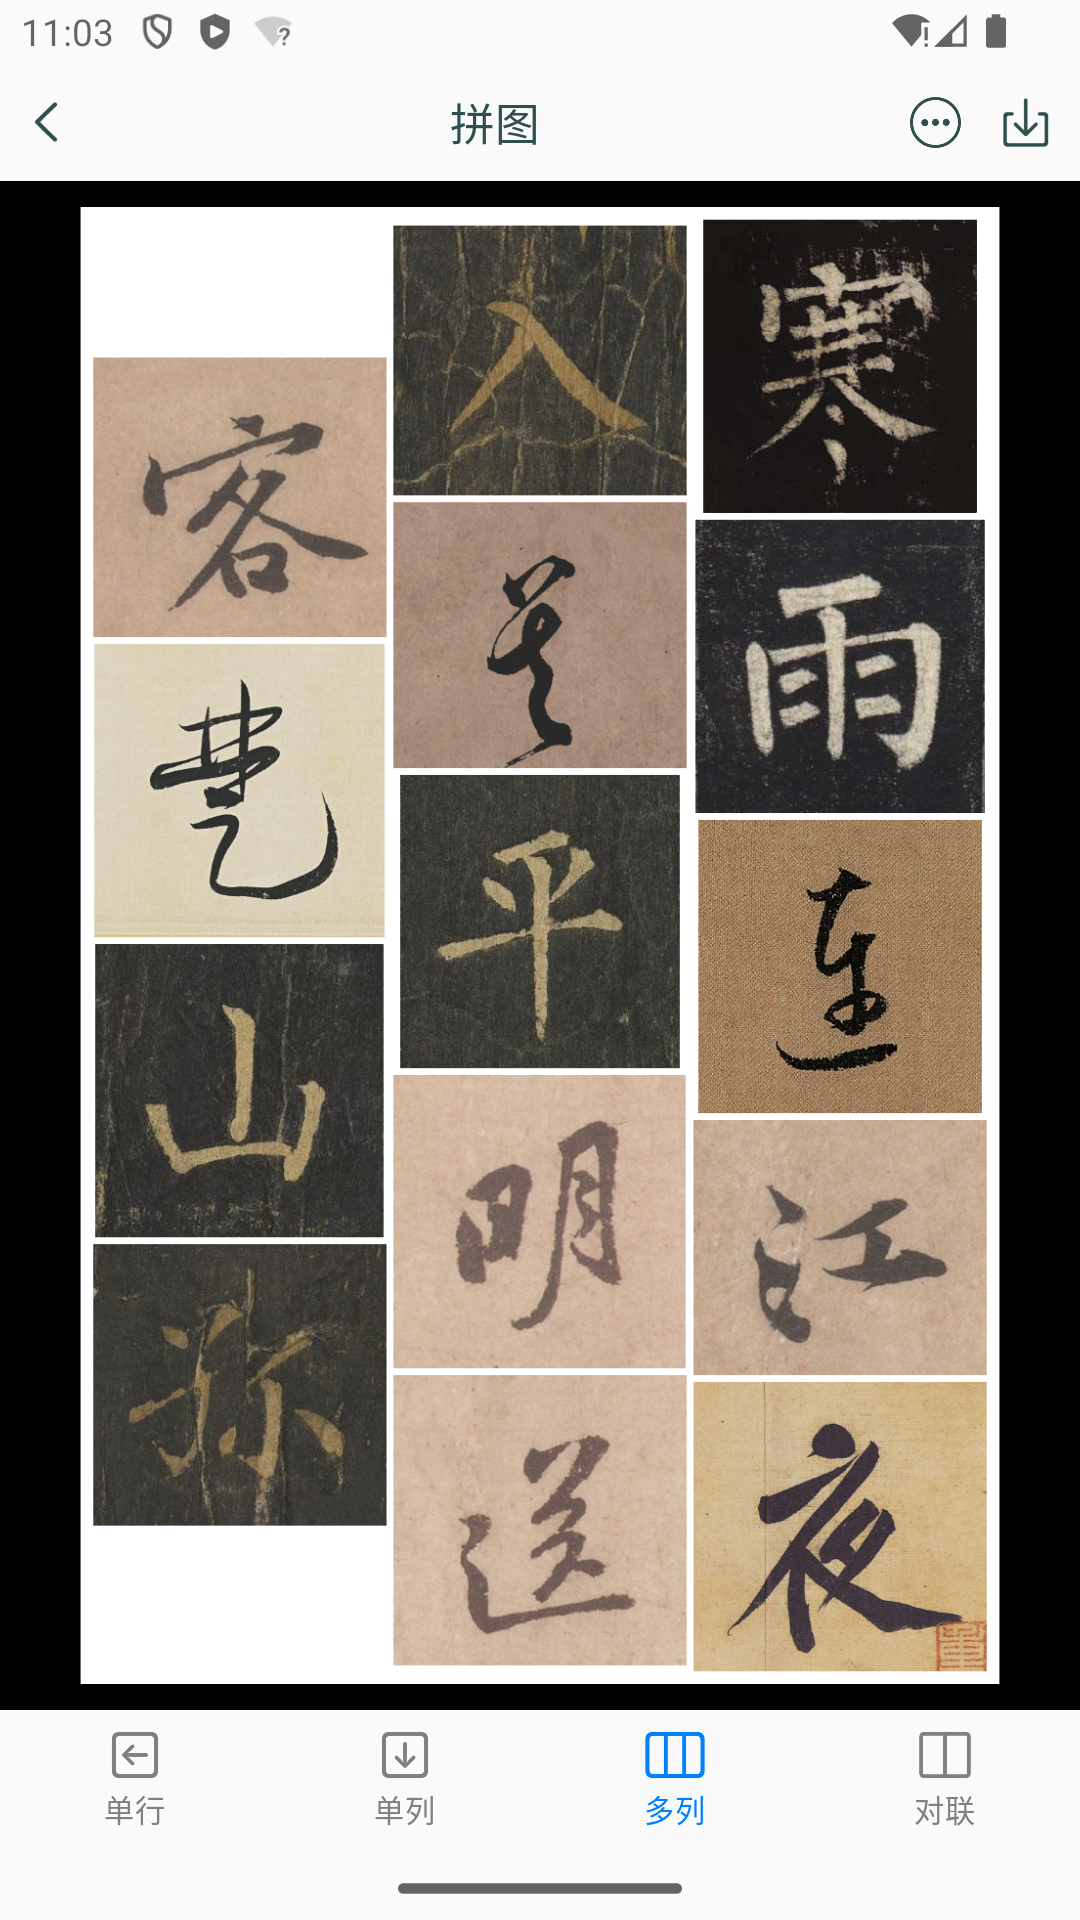 11:03
拼图
寒雨連江夜
入吳平明送
客楚山孤
单行 单列 多列 对联